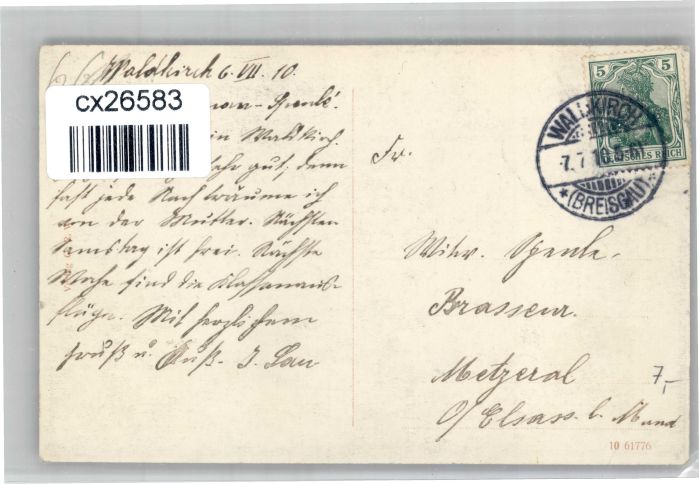 Waldkirch 6. VII. 10.
cx26583
in Waldkirch.
sehr gut, denn
fast jede Nacht träume ich
von der Mutter. Nächsten
Samstag ist frei. Nächste
Woche sind die Klassenaus-
flüge. Mit herzlichem
Gruß u. Kuß. J.
5 5
DEUTSCHES REICH
WALDKIRCH
7.7.10.
*(BREISGAU)*
Fr.
Witw. Spenle.
Brasseur.
Metzeral
O/Elsass.
7,-
10 61776